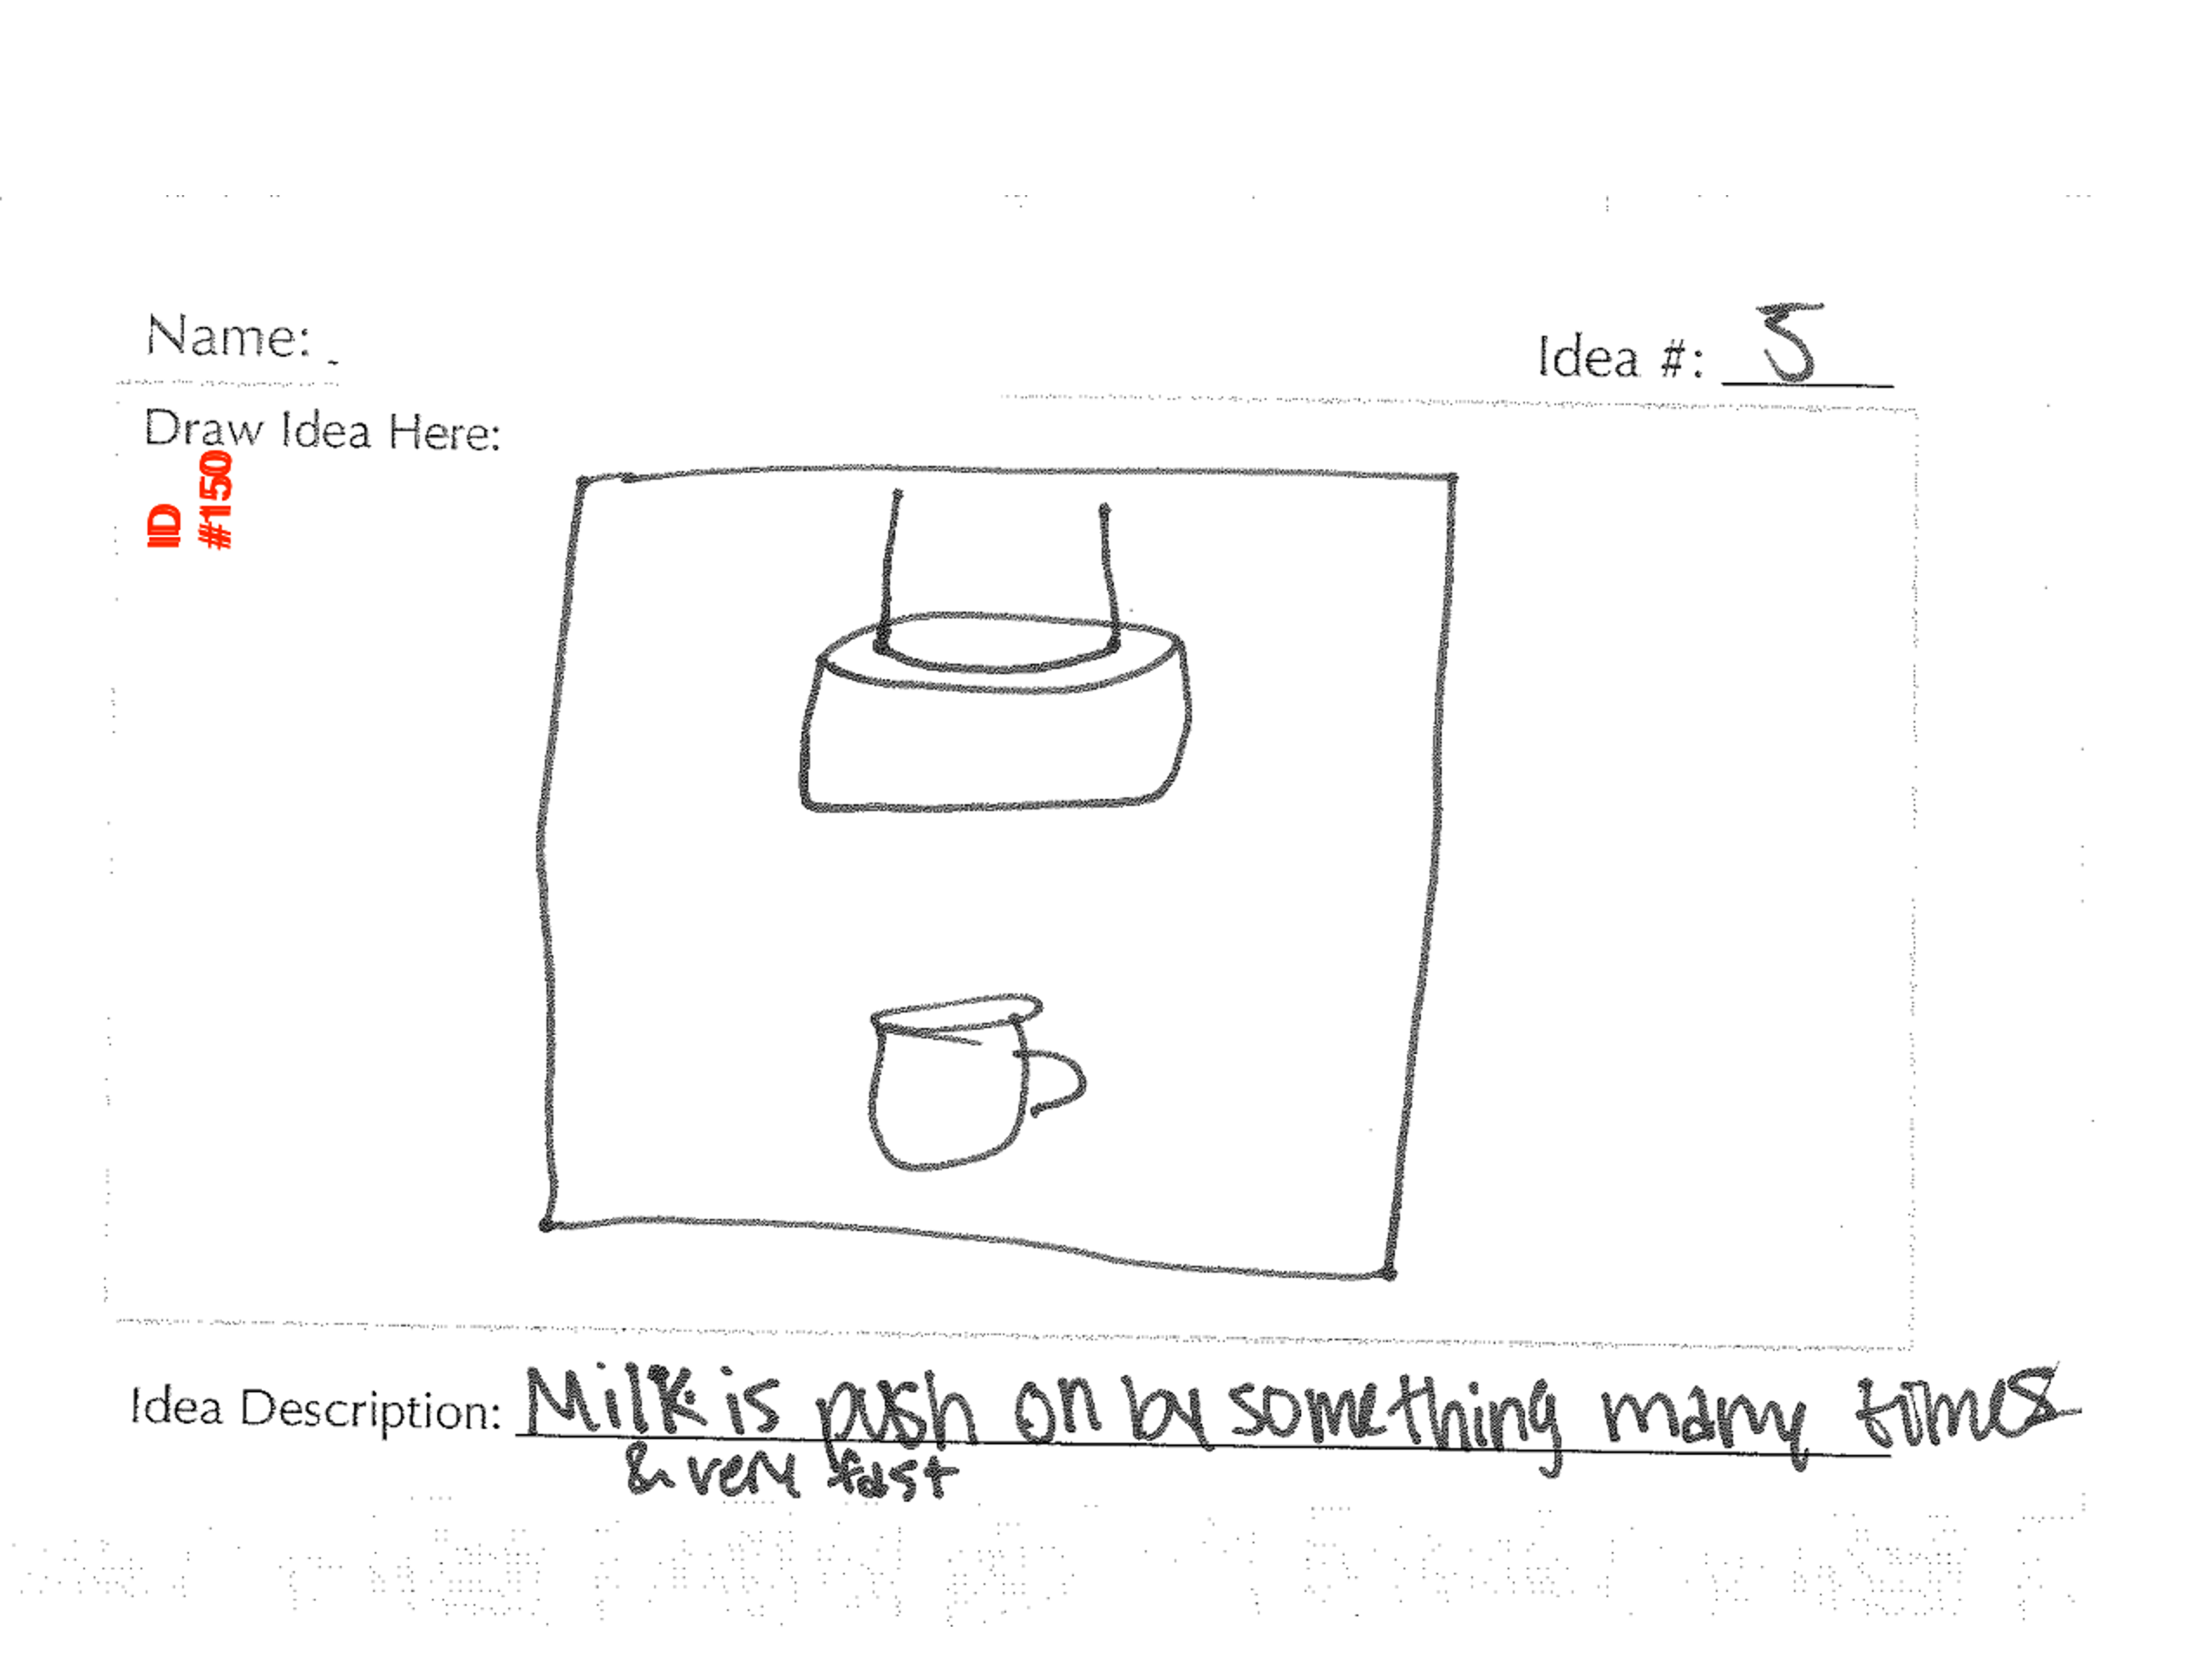 Name:
Idea #: 5
Draw Idea Here:
ID
#150
Idea Description: Milk is push on by something many times
& very fast